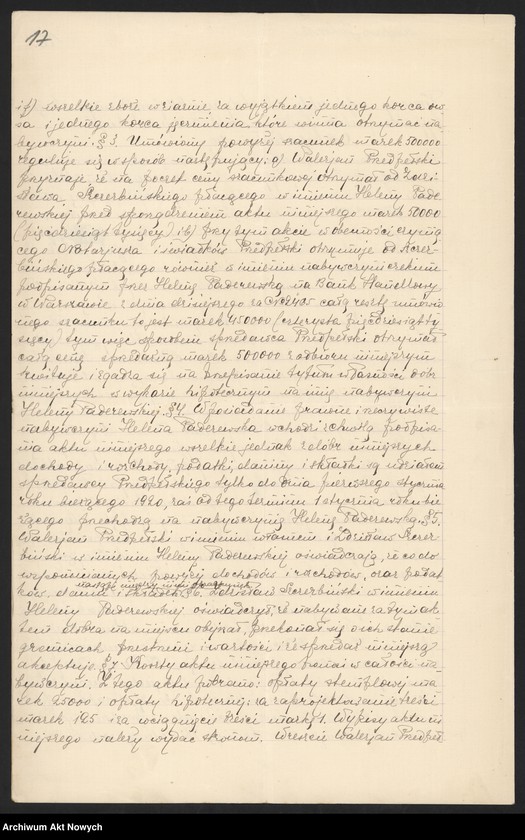 17
i f) wszelkie zboże w ziarnie za wyjątkiem jednego korca ow
sa i jednego korca jęczmienia, które winna otrzymać na
bywczyni. § 3. Umówiony powyżej szacunek marek 500000
reguluje się w sposób następujący: a) Walerjan Przedpełski
przyznaje, że na poczet ceny szacunkowej otrzymał od Zdzi-
sława Szczerbińskiego płacącego w imieniu Heleny Pade
rewskiej przed sporządzeniem aktu niniejszego marek 50000
(pięćdziesiąt tysięcy) i b) przy tym akcie w obecności czynią
cego Notarjusza i świadków Przedpełski otrzymuje od Szczer-
bińskiego płacącego również w imieniu nabywczyni czekiem
podpisanym przez Helenę Paderewską na Bank Handlowy
w Warszawie z dnia dzisiejszego za całą resztę umówio
nego szacunku to jest marek 450000 (czterysta pięćdziesiąt ty
sięcy) tym więc sposobem sprzedawca Przedpełski otrzymał
całą cenę sprzedażną marek 500000 z odbioru niniejszym
kwituje i zgadza się na przepisanie tytułu własności dóbr
niniejszych w wykazie hipotecznym na imię nabywczyni
Heleny Paderewskiej. § 4. W posiadanie prawne i rzeczywiste
nabywczyni Helena Paderewska wchodzi z chwilą podpisa
nia aktu niniejszego wszelkie jednak z dóbr niniejszych
dochody i rozchody, podatki, daniny i składki są udziałem
sprzedawcy Przedpełskiego tylko do dnia pierwszego stycznia
roku bieżącego 1920, zaś od tego terminu 1 stycznia roku bie
żącego przechodzą na nabywczynię Helenę Paderewską. § 5.
Walerjan Przedpełski w imieniu własnem i Zdzisław Szczer-
biński w imieniu Heleny Paderewskiej oświadczają, że co do
wspomnianych powyżej dochodów i rozchodów, oraz podat
ków, danin i składek § 6. Zdzisław Szczerbiński w imieniu
Heleny Paderewskiej oświadczył, że nabywane za tym ak
tem dobra na miejscu obejrzał, przekonał się o ich stanie
granicach przestrzeni i wartości i że sprzedaż niniejszą
akceptuje. § 7. Koszty aktu niniejszego ponosi w całości na
bywczyni. Z tego aktu pobrano: opłaty stemplowej ma
rek 25000 i opłaty hipotecznej: za zaprojektowanie treści
marek 125 i za wciągnięcie treści marek 1. Wypisy aktu ni
niejszego należy wydać stronom. Wreszcie Walerjan Przedpeł
Archiwum Akt Nowych